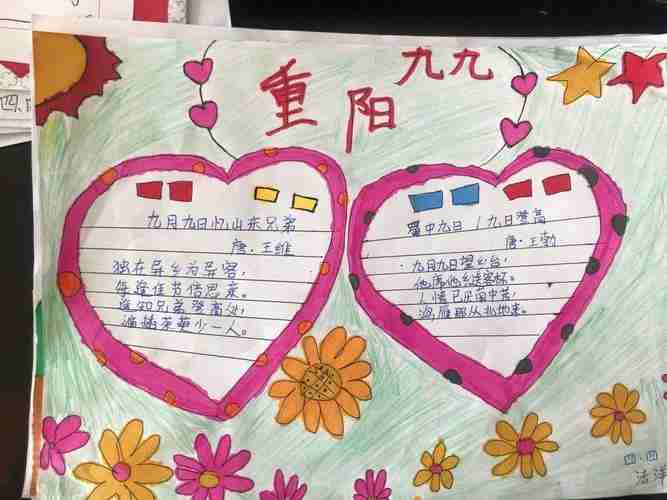 九九
重阳
九月九日忆山东兄弟
唐·王维
独在异乡为异客，
每逢佳节倍思亲。
遥知兄弟登高处，
遍插茱萸少一人。
蜀中九日/九日登高
唐·王勃
九月九日望乡台，
他席他乡送客杯。
人情已厌南中苦，
鸿雁那从北地来。
四·四
四.